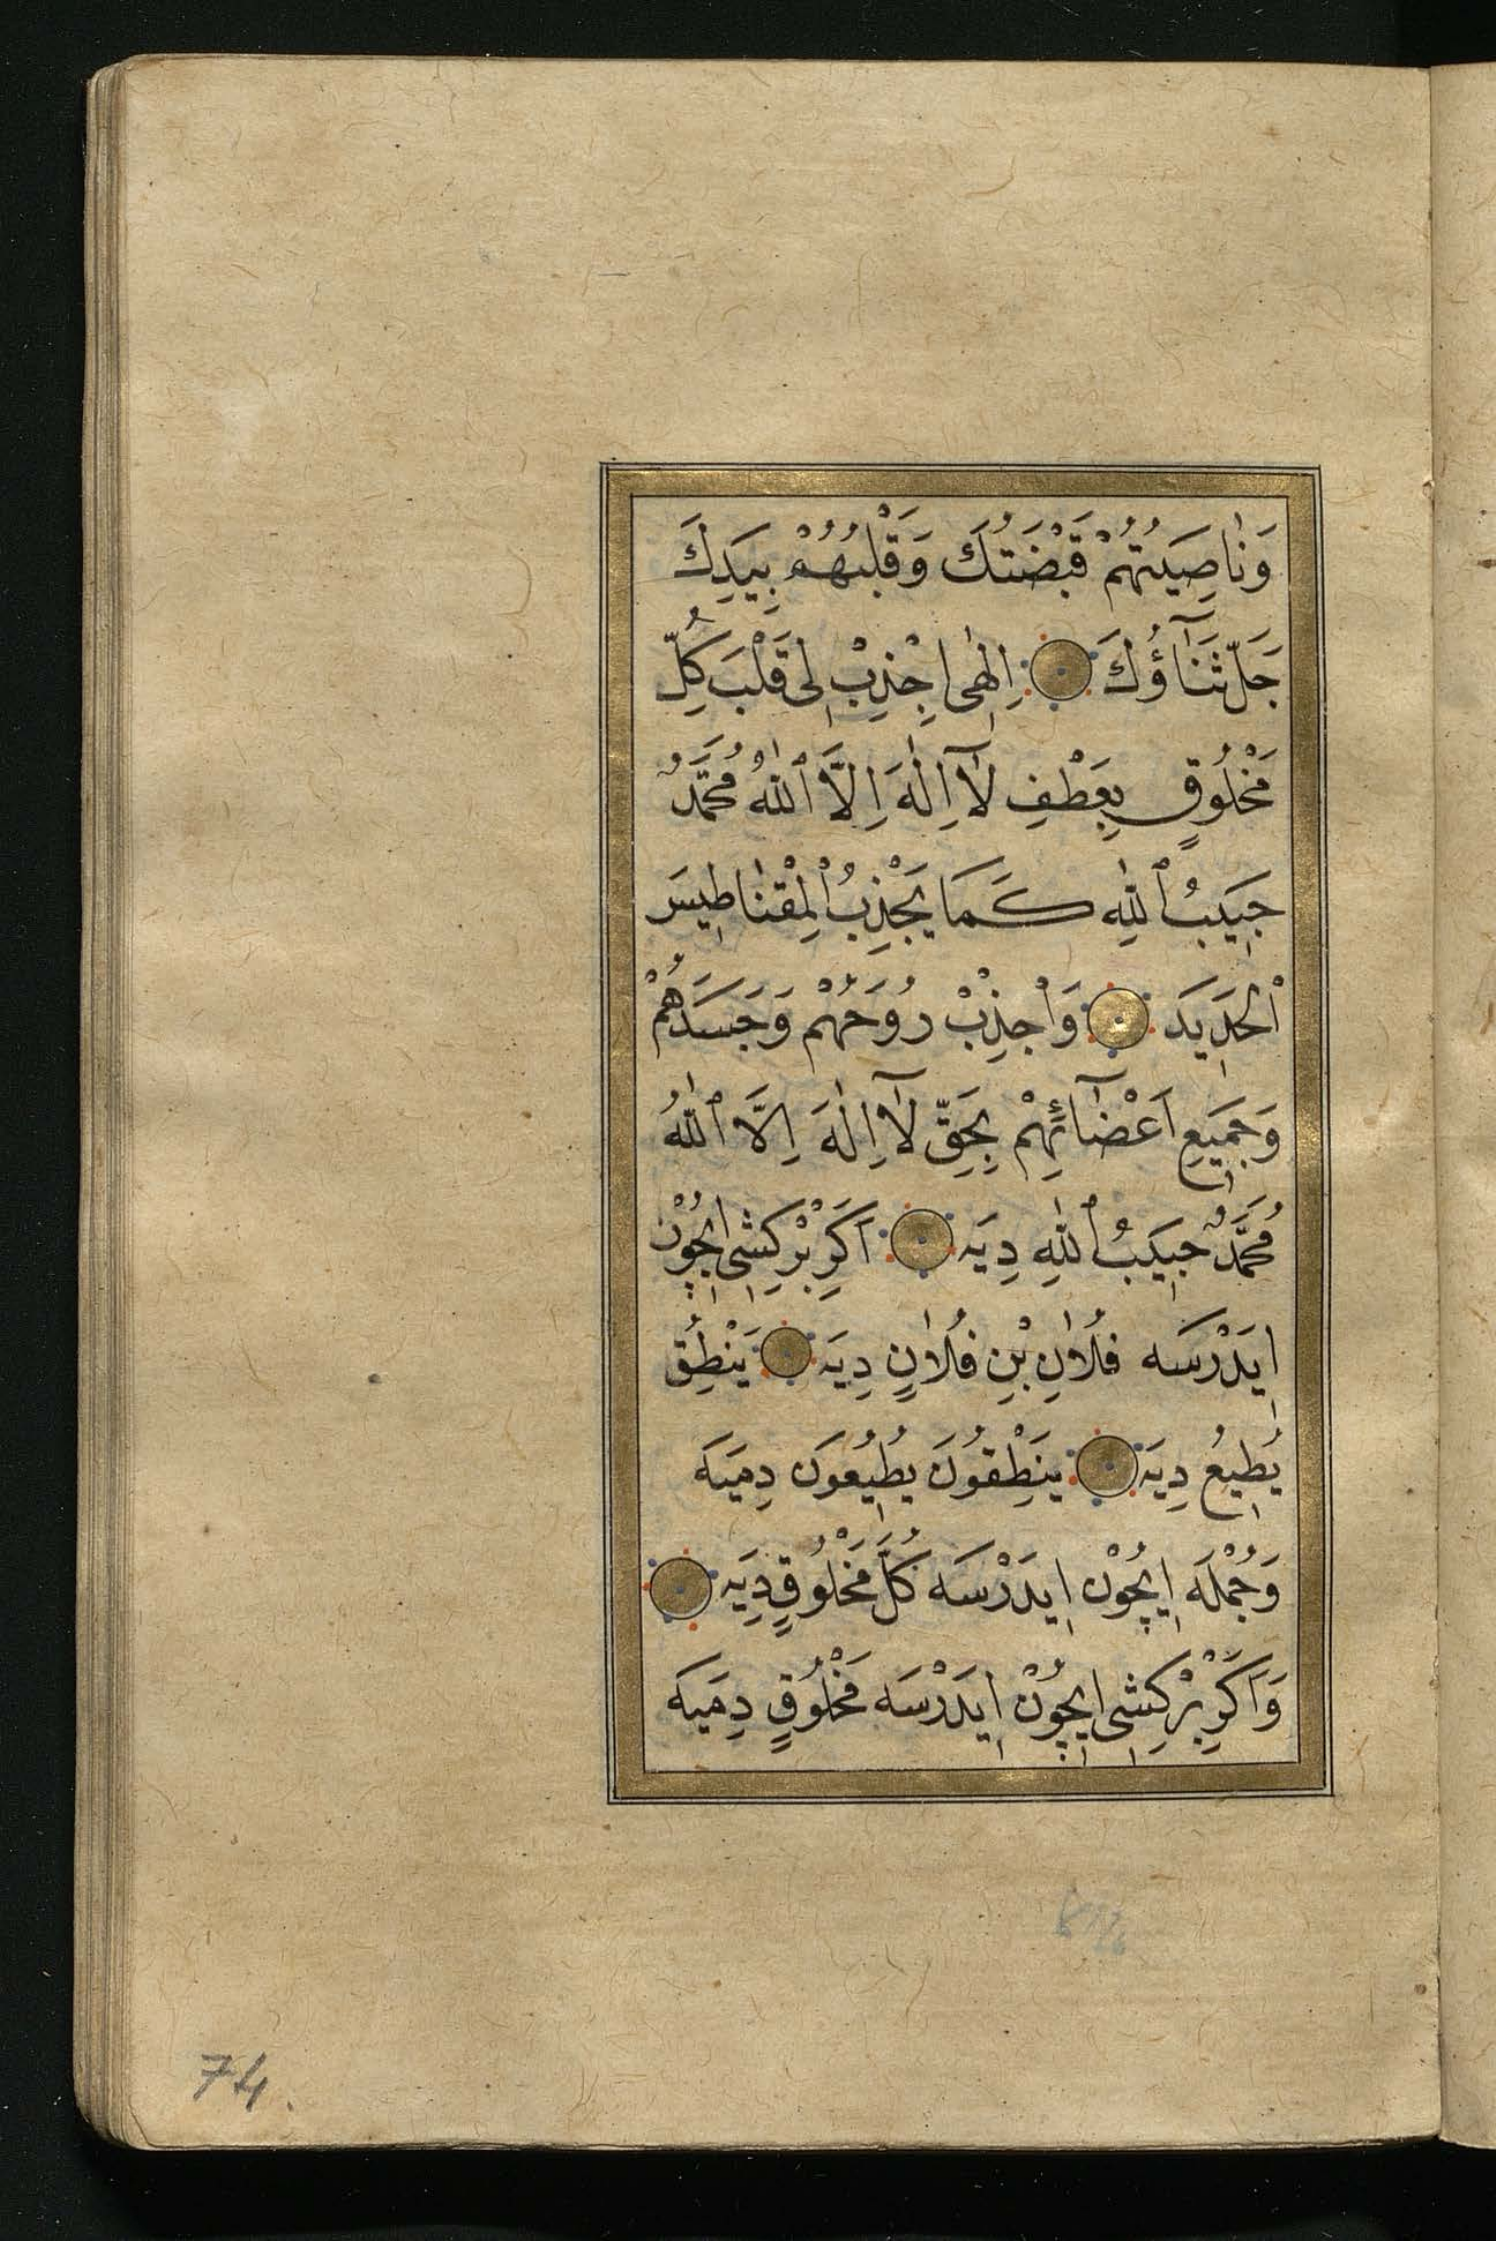 وَنَاصِيَتُهُمْ قَبْضَتُكَ وَقَلْبُهُمْ بِيَدِكَ
جَلَّ ثَنَآؤُكَ اِلٰهٖى اِجْذِبْ لٖى قَلْبَ كُلِّ
مَخْلُوقٍ بِعَطْفِ لَآ اِلٰهَ اِلَّا ٱللّٰهُ مُحَمَّدٌ
حَبٖيبُ ٱللّٰهِ كَمَا يَجْذِبُ الْمِقْنَاطٖيسَ
الْحَدٖيدَ وَاجْذِبْ رُوحَهُمْ وَجَسَدَهُمْ
وَجَمٖيعِ اَعْضَآئِهِمْ بِحَقِّ لَآ اِلٰهَ اِلَّا ٱللّٰهُ
مُحَمَّدٌ حَبٖيبُ ٱللّٰهِ دِيَه اَكَرْ بْرْ كِشٖى اٖيچُوْنْ
اٖيدَرْسَه فُلَانِ بْنِ فُلَانٍ دِيَه يَنْطِقُ
يُطٖيعُ دِيَه يَنْطِقُونَ يُطٖيعُونَ دِمَيَه
وَجُمْلَه اٖيچُوْنْ اٖيدَرْسَه كُلَّ مَخْلُوقٍ دِيَه
وَاَكَرْ بْرْ كِشٖى اٖيچُوْنْ اٖيدَرْسَه مَخْلُوقٍ دِمَيَه
74.